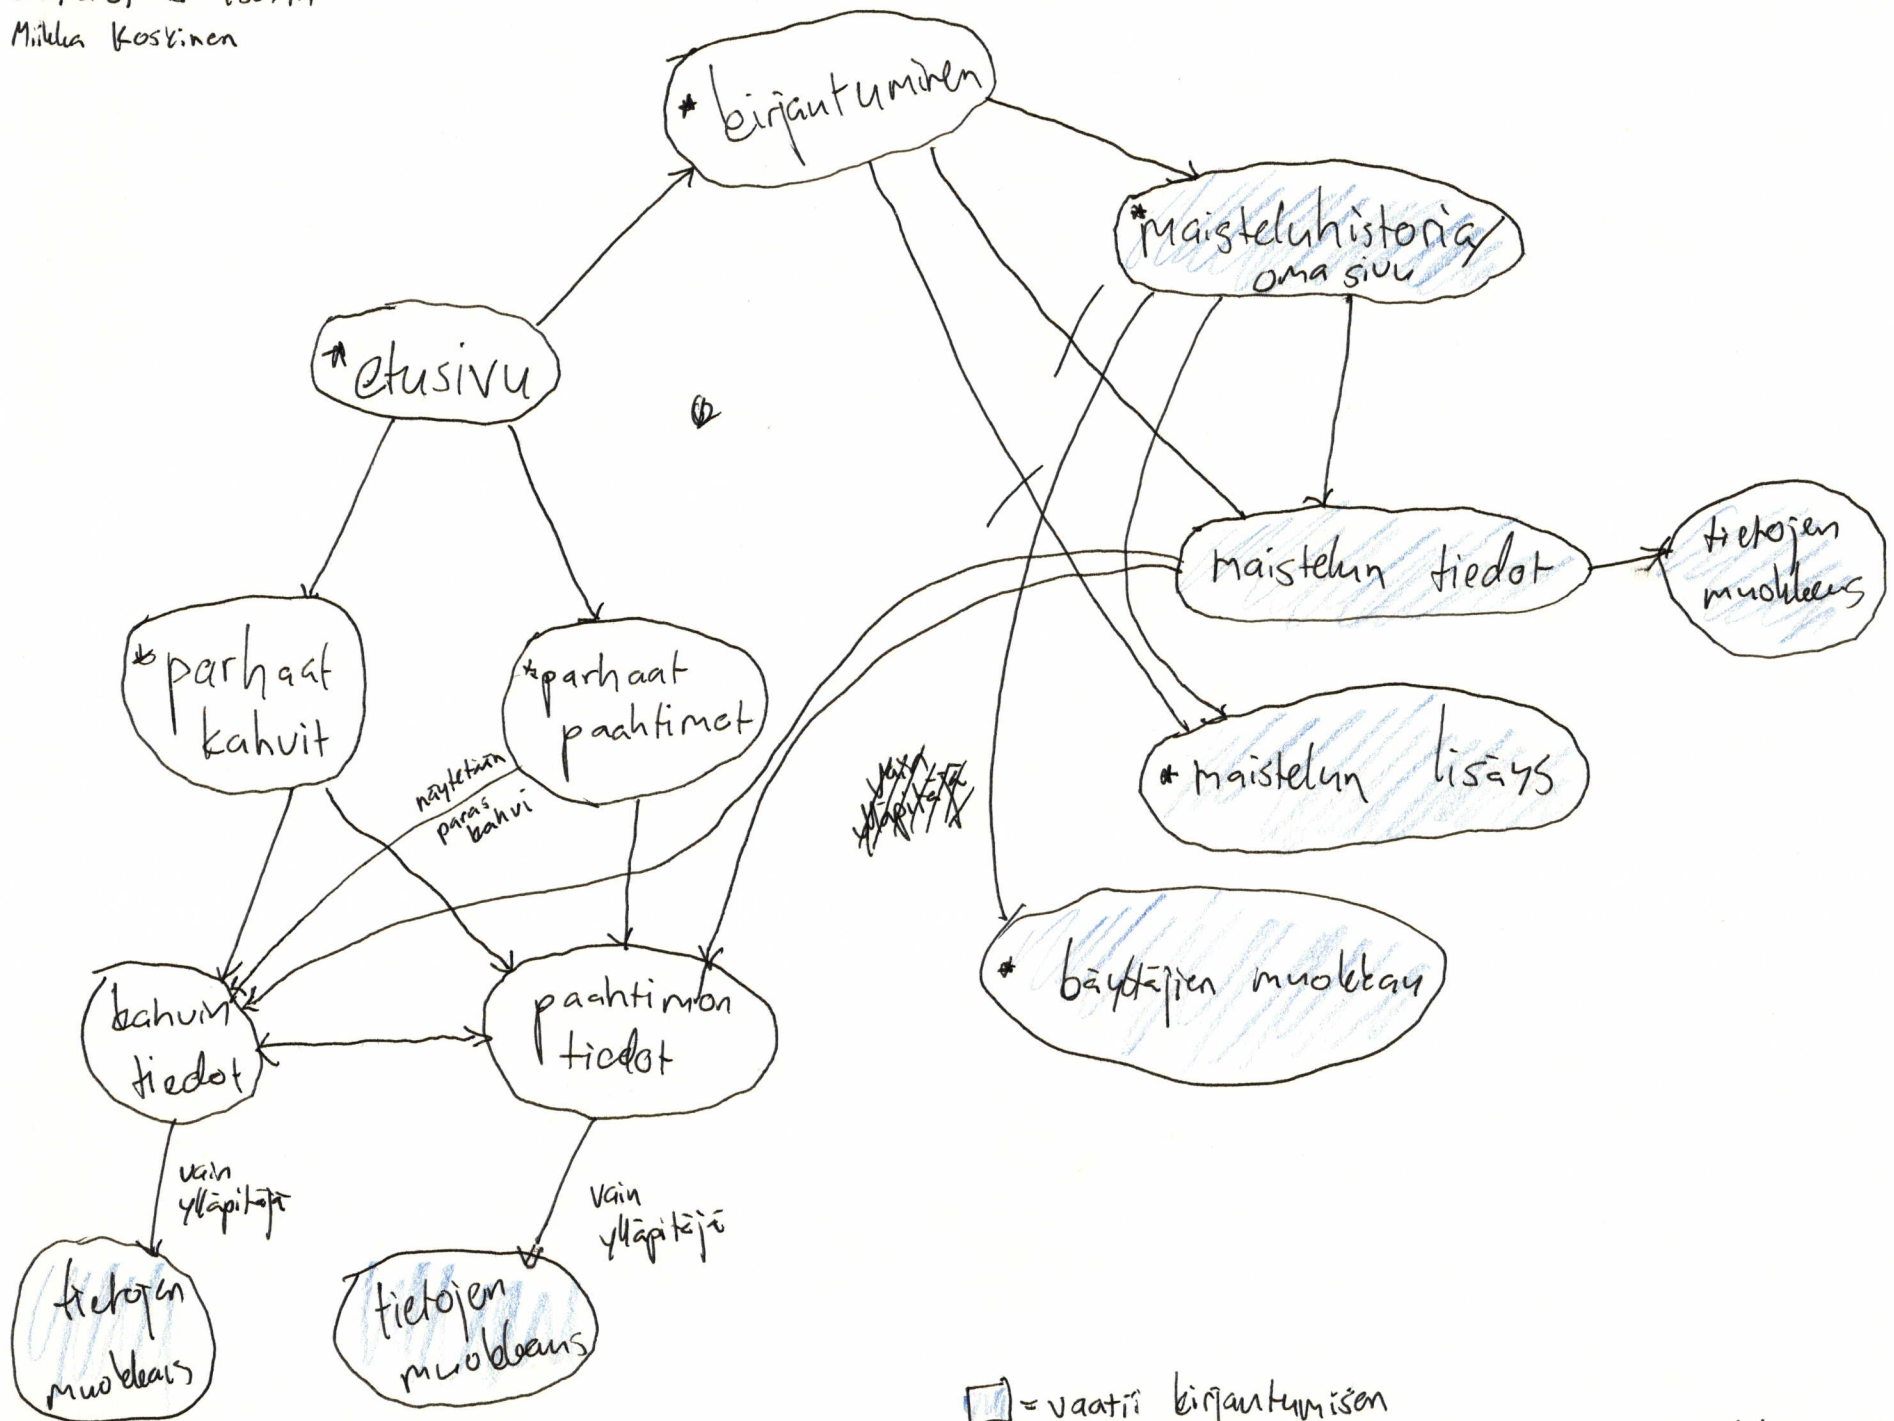 Miikka Koskinen
* kirjautuminen
* maisteluhistoria/
oma sivu
* etusivu
maistelun tiedot
tietojen
muokkaus
* parhaat
kahvit
* parhaat
paahtimot
näytetään
paras
kahvi
* maistelun lisäys
* käyttäjien muokkau
kahvin
tiedot
paahtimon
tiedot
vain
ylläpitäjä
vain
ylläpitäjä
tietojen
muokkaus
tietojen
muokkaus
= vaatii kirjautumisen